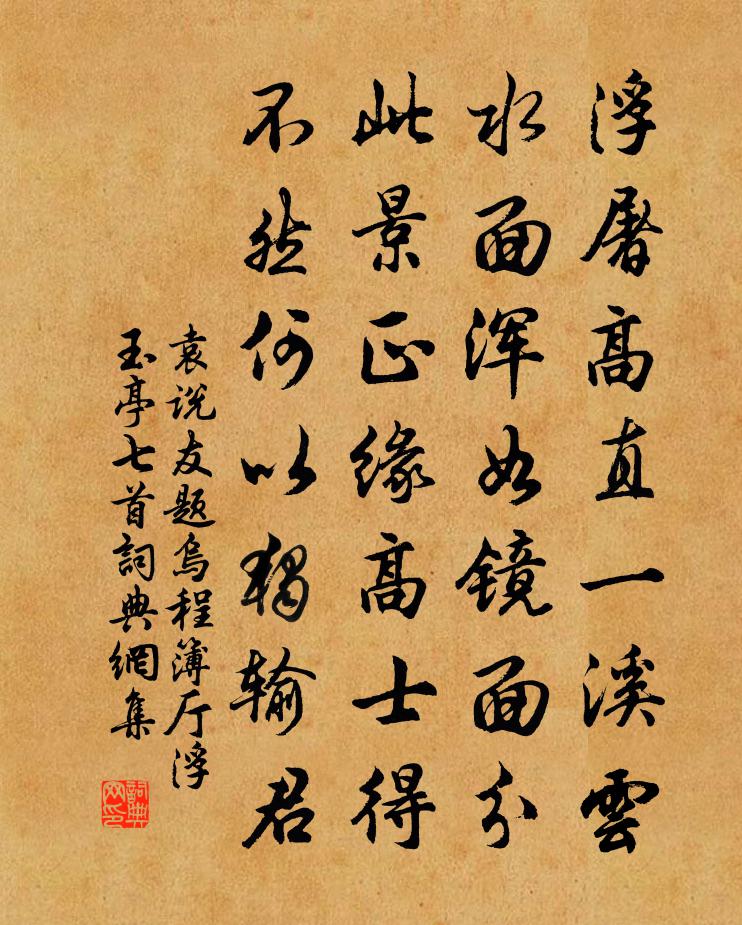 浮屠高直一溪雲
水面浑如镜面分
此景正缘高士得
不然何以獨输君
袁说友题烏程簿厅浮
玉亭七首詞典網集
詞典
网印